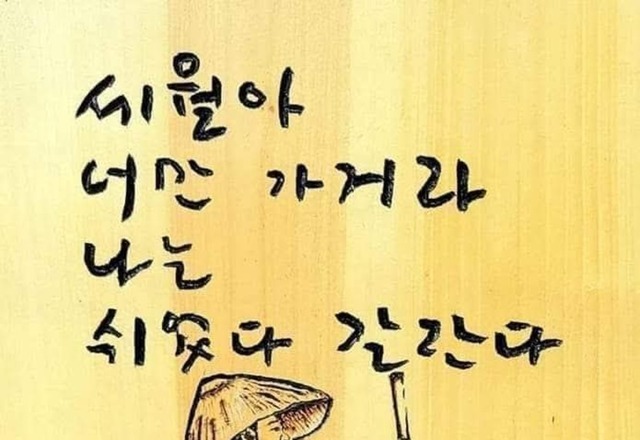 세월아
너만 가거라
나는
쉬엿다 갈란다